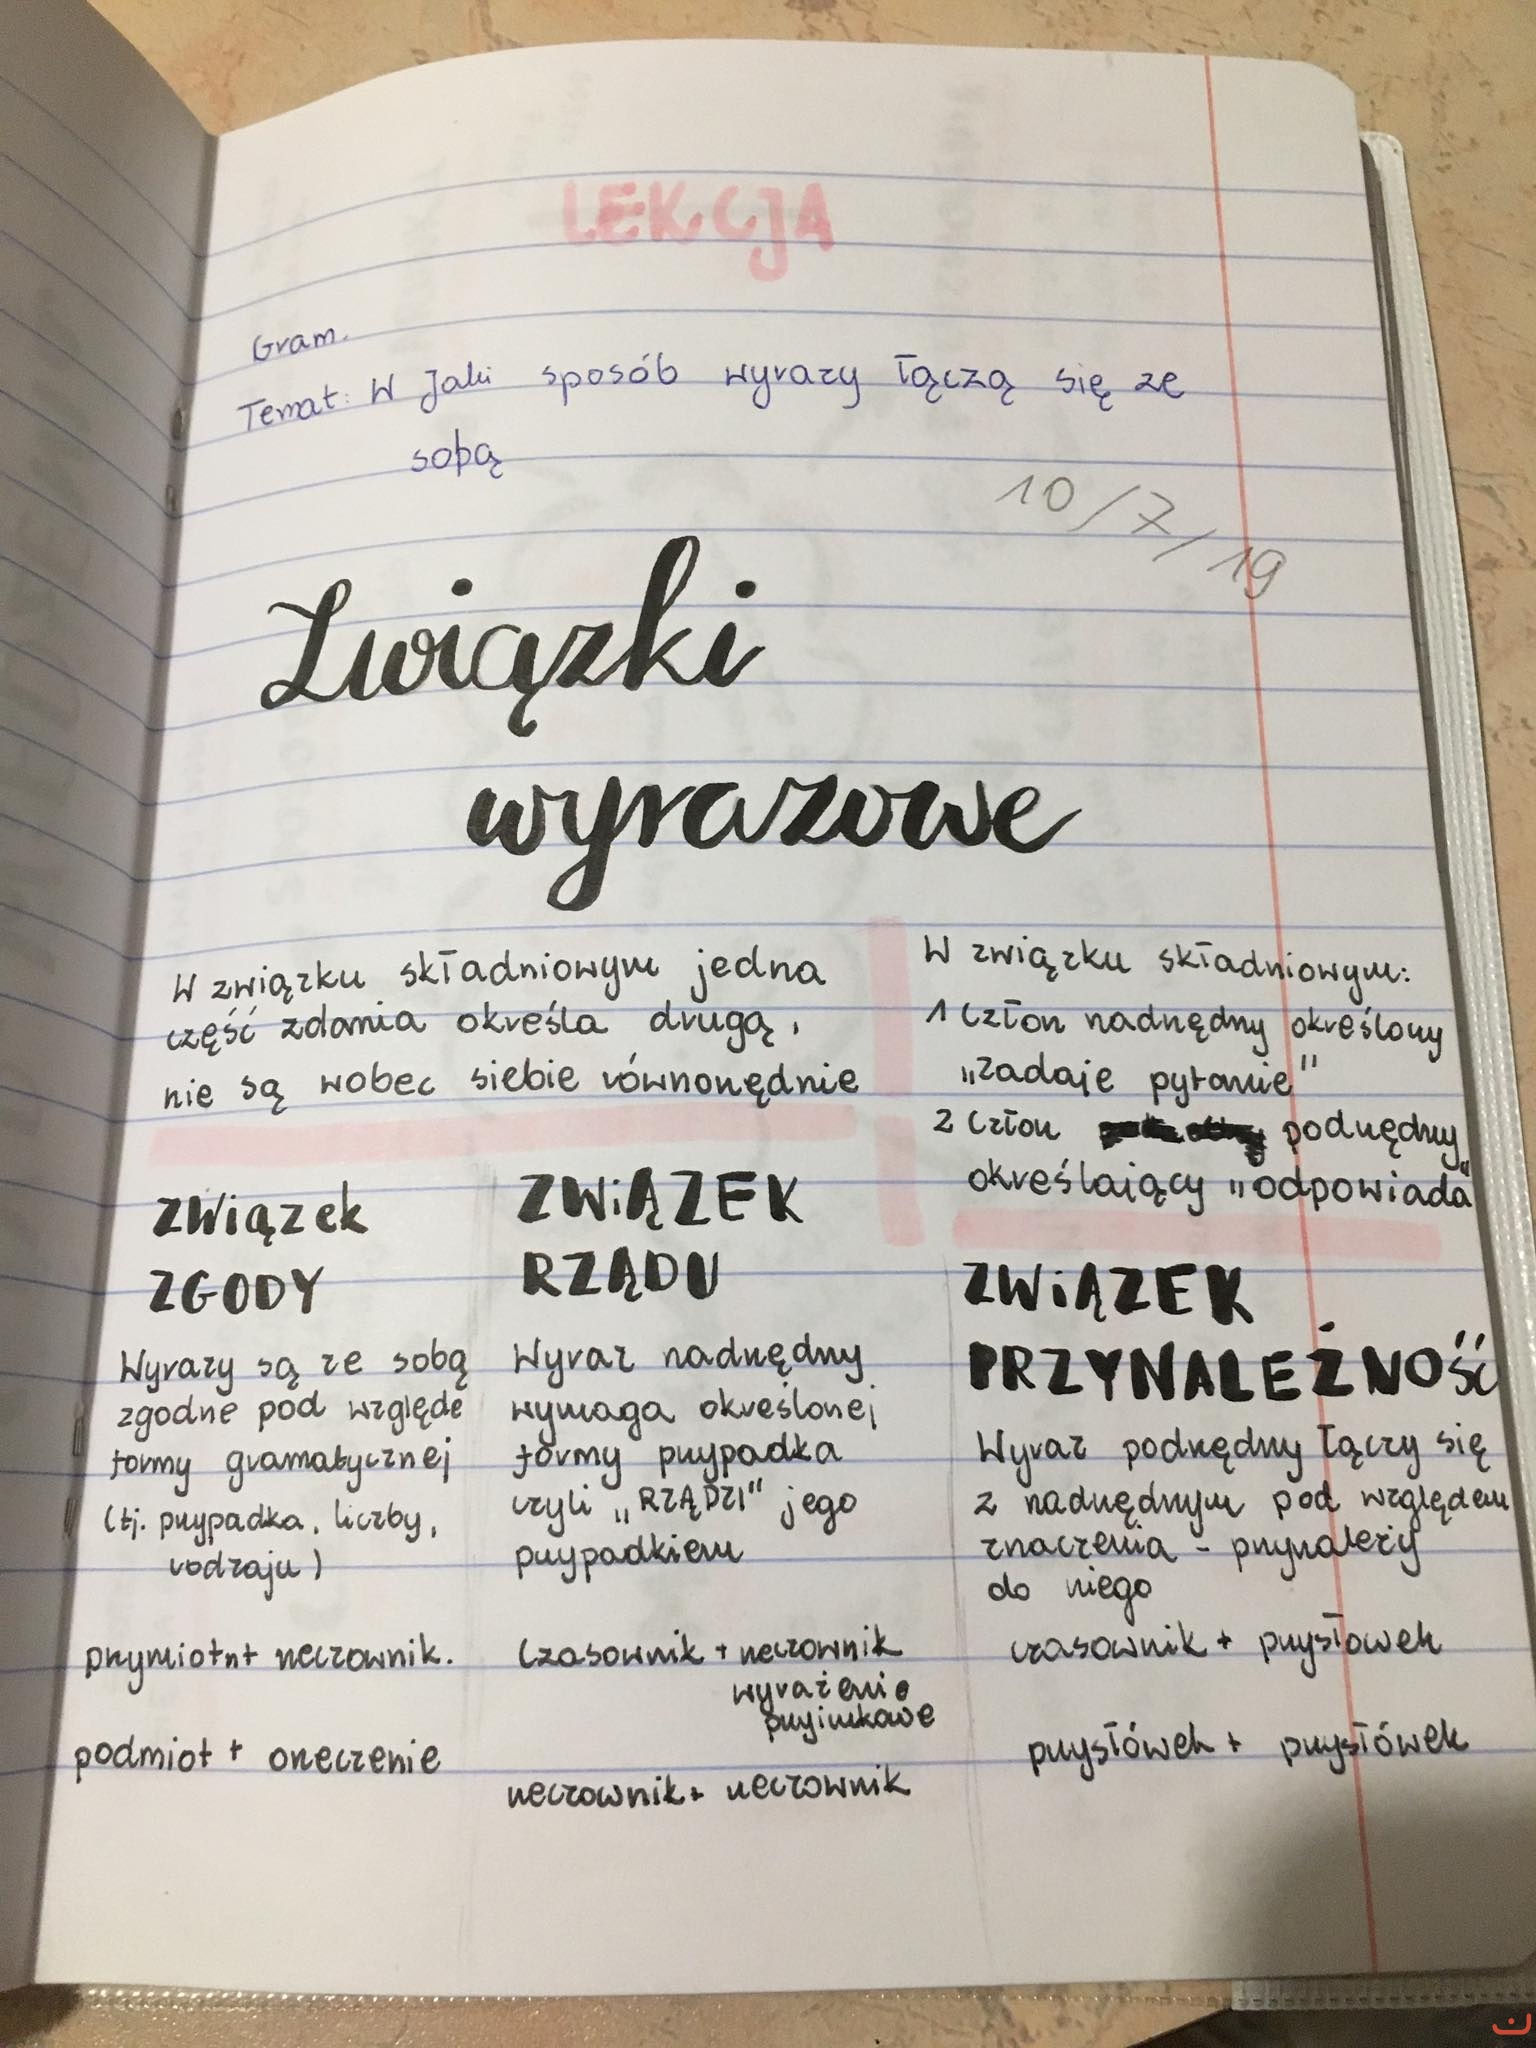 LEKCJA
Gram.
Temat: W Jaki sposób wyrazy łączą się ze
sobą
10/7/19
Związki
wyrazowe
W związku składniowym jedna
część zdania określa drugą,
nie są wobec siebie równorzędnie
W związku składniowym:
1 Człon nadrzędny określony
„zadaje pytanie"
2 Człon podrzędny
określający „odpowiada"
związek
ZGODY
Wyrazy są ze sobą
zgodne pod względe
formy gramatycznej
(tj. przypadka, liczby,
rodzaju)
przymiotn+ rzeczownik.
podmiot + orzeczenie
ZWiĄZEK
RZĄDU
Wyraz nadrzędny
wymaga określonej
formy przypadka
czyli „RZĄDZI" jego
przypadkiem
Czasownik + rzeczownik
wyrażenie
przyimkowe
rzeczownik + rzeczownik
ZWiĄZEK
PRZYNALEŻNOŚĆ
Wyraz podrzędny łączy się
z nadrzędnym pod względem
znaczenia - przynależy
do niego
czasownik + przysłowek
przysłówek + przysłówek